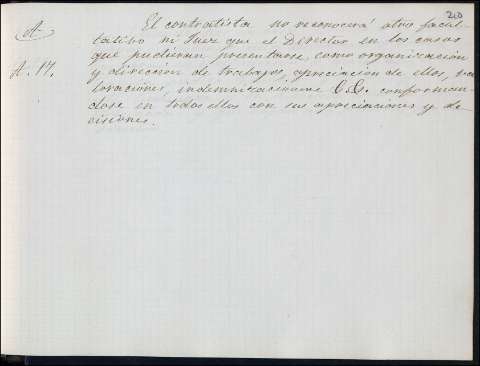 210
A.
El contratista no reconocerá otro facul-
tativo ni Juez que el Director en los casos
que pudieran presentarse, como organización
A. 17. y dirección de trabajos, apreciación de ellos, va-
loraciones, indemnizaciones &. &. conforman-
dose en todos ellos con sus apreciaciones y de-
cisiones.